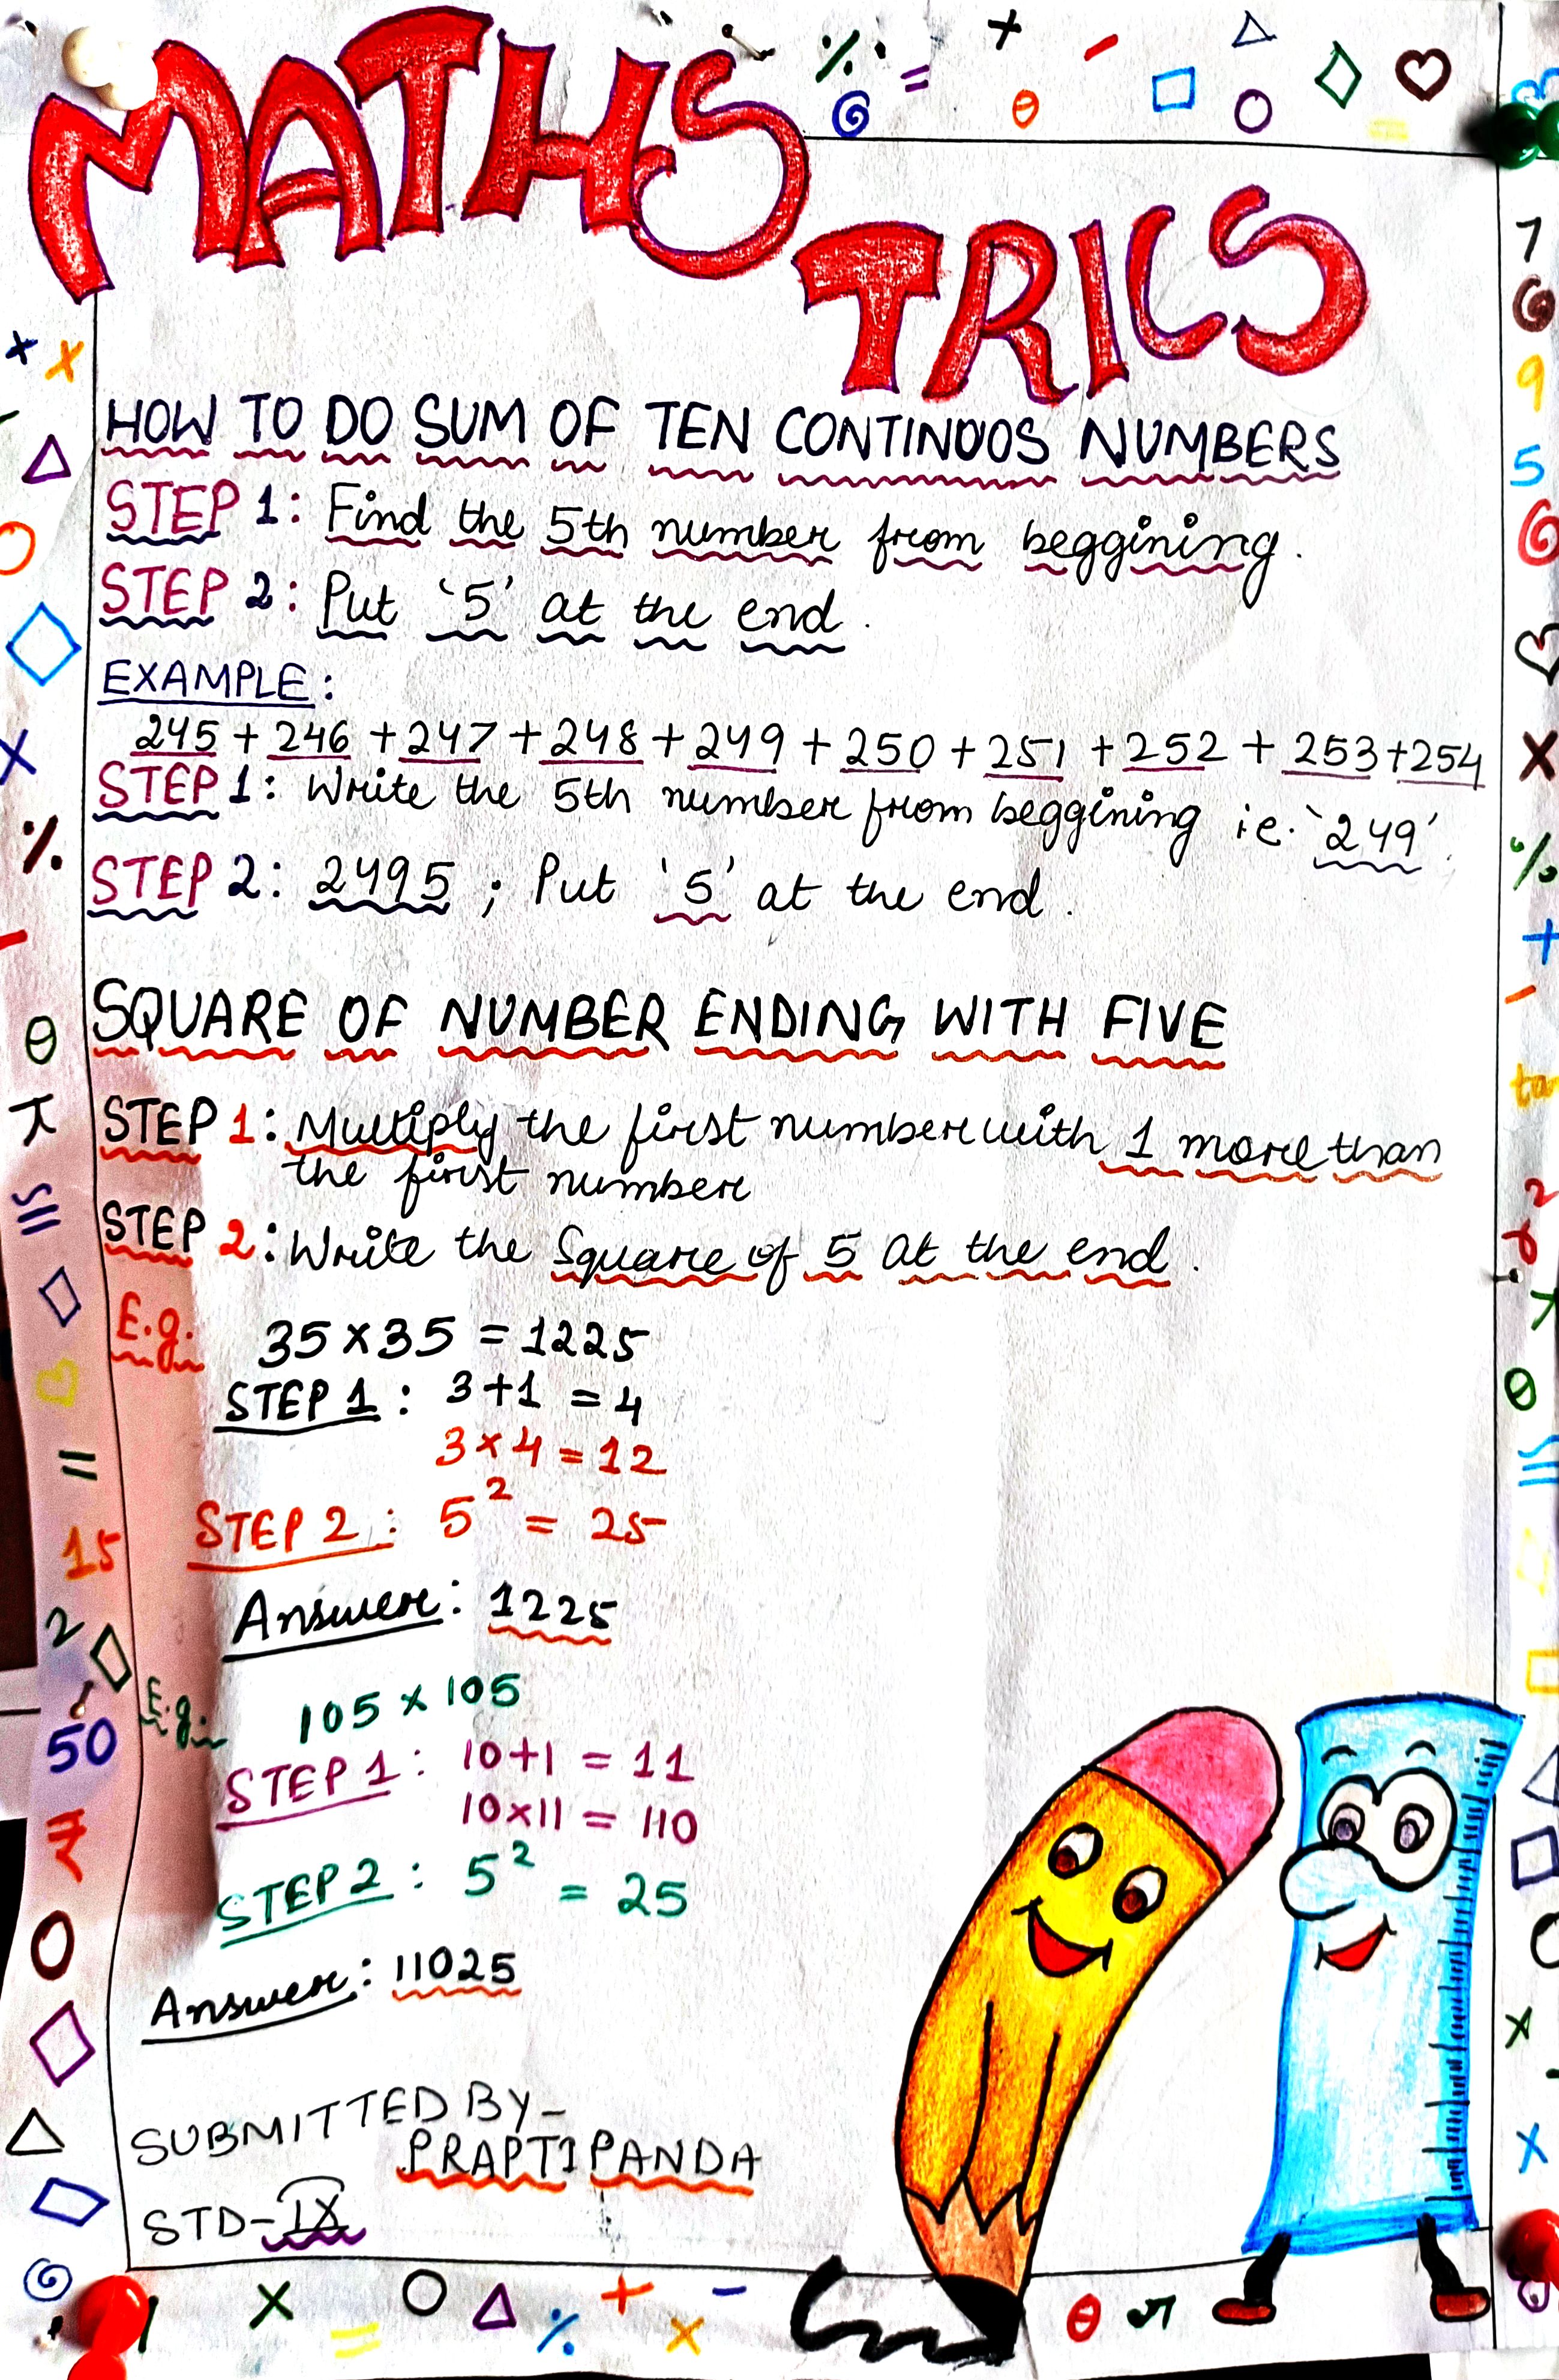 MATHS
TRICS
HOW TO DO SUM OF TEN CONTINOOS NUMBERS
STEP 1: Find the 5th number from beggining.
STEP 2: Put '5' at the end.
EXAMPLE:
245 + 246 + 247 + 248 + 249 + 250 + 251 + 252 + 253 + 254
STEP 1: Write the 5th number from beggining i.e. '249'.
STEP 2: 2495 ; Put '5' at the end.
SQUARE OF NUMBER ENDING WITH FIVE
STEP 1: Multiply the first number with 1 more than
the first number
STEP 2: Write the Square of 5 at the end.
E.g. 35 × 35 = 1225
STEP 1 : 3+1 = 4
3 × 4 = 12
STEP 2 : 5² = 25
Answer : 1225
E.g. 105 × 105
STEP 1 : 10+1 = 11
10×11 = 110
STEP 2 : 5² = 25
Answer : 11025
SUBMITTED BY-
PRAPTI PANDA
STD-IX